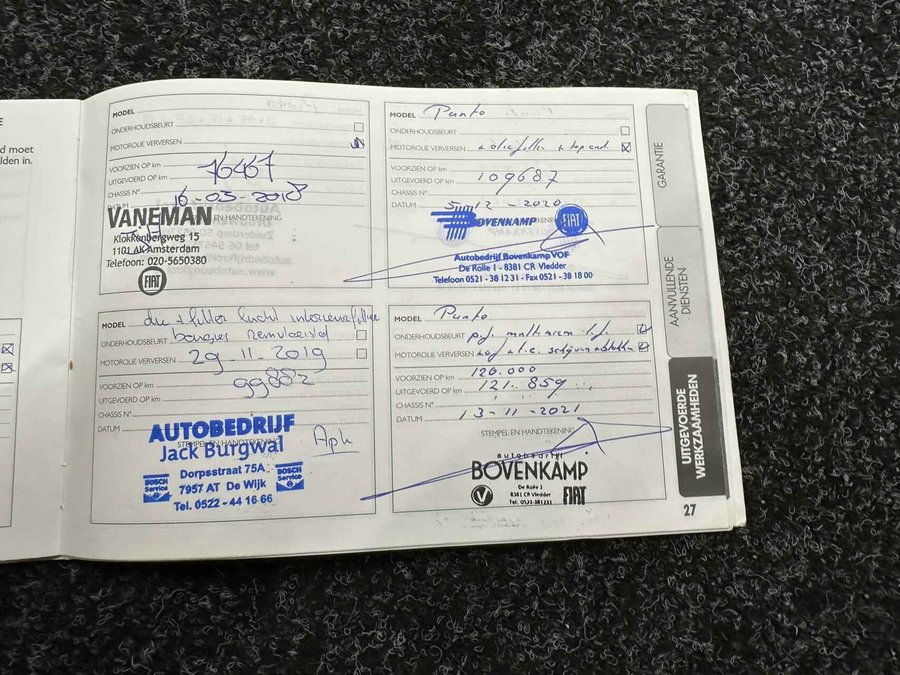 E
d moet
lden in.
MODEL
ONDERHOUDSBEURT
MOTOROLIE VERVERSEN
VOORZIEN OP km
UITGEVOERD OP km 76467
CHASSIS N°
DATUM 16-03-2018
STEMPEL EN HANDTEKENING
VANEMAN
Klokkenbergweg 15
1101 AK Amsterdam
Telefoon: 020-5650380
FIAT
MODEL Punto
ONDERHOUDSBEURT
MOTOROLIE VERVERSEN + oliefilter + top
VOORZIEN OP km
UITGEVOERD OP km 109687
CHASSIS N°
DATUM 5-12-2020
BOVENKAMP FIAT
Autobedrijf Bovenkamp VOF
De Rolle 1 - 8381 CR Vledder
Telefoon 0521 - 38 12 31 - Fax 0521 - 38 18 00
MODEL olie + filter lucht interieurfilter
ONDERHOUDSBEURT bougies remvloeistof
MOTOROLIE VERVERSEN 29-11-2019
VOORZIEN OP km
UITGEVOERD OP km 99882
CHASSIS N°
DATUM
STEMPEL EN HANDTEKENING
AUTOBEDRIJF
Jack Burgwal
Dorpsstraat 75A
7957 AT De Wijk
Tel. 0522 - 44 16 66
BOSCH Service
BOSCH Service
MODEL Punto
ONDERHOUDSBEURT
MOTOROLIE VERVERSEN
VOORZIEN OP km 120.000
UITGEVOERD OP km 121.859
CHASSIS N°
DATUM 13-11-2021
STEMPEL EN HANDTEKENING
autobedrijf
BOVENKAMP
De Rolle 1
8381 CR Vledder
Tel: 0521-381231
FIAT
GARANTIE
AANVULLENDE
DIENSTEN
UITGEVOERDE
WERKZAAMHEDEN
27